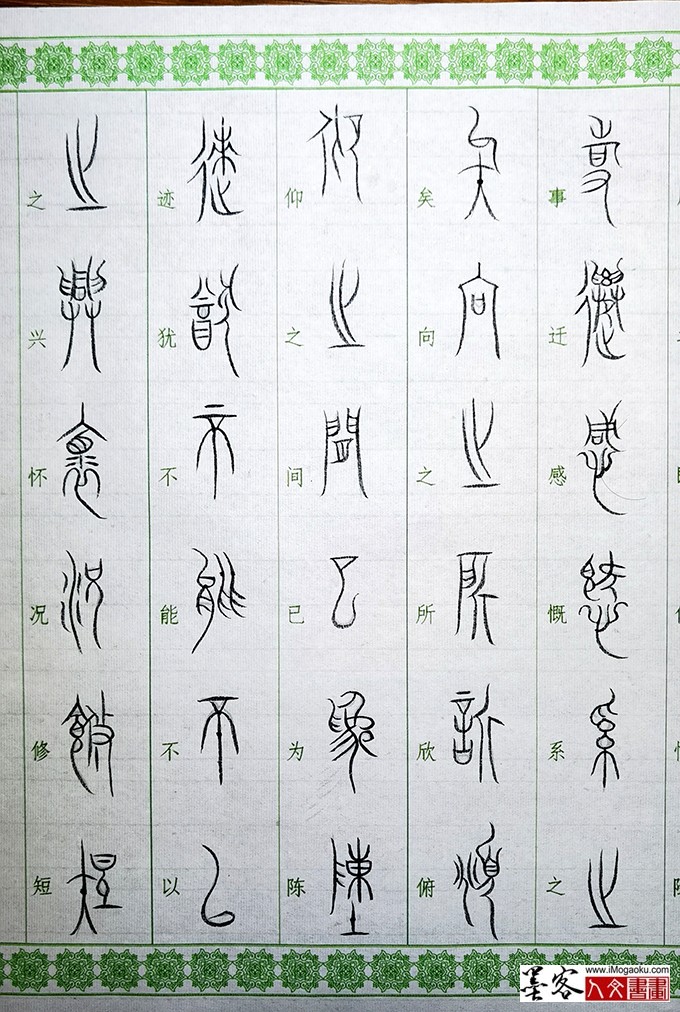 事迁感慨系之
矣向之所欣俯
仰之间已为陈
迹犹不能不以
之兴怀况修短
墨客
www.iMogaoku.com
人文書畫